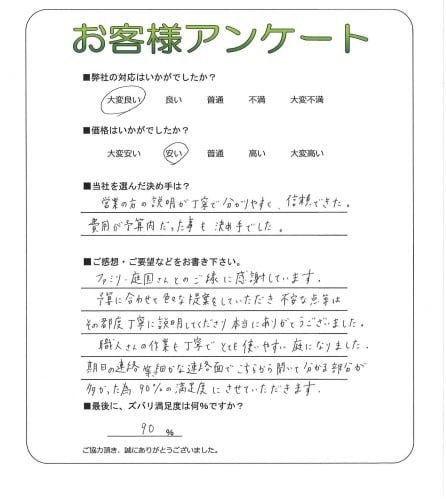 お客様アンケート
■弊社の対応はいかがでしたか？
大変良い 良い 普通 不満 大変不満
■価格はいかがでしたか？
大変安い 安い 普通 高い 大変高い
■当社を選んだ決め手は？
営業の方の説明が丁寧で分かりやすく、信頼できた。
費用が予算内だった事も決め手でした。
■ご感想・ご要望などをお書き下さい。
ファミリー庭園さんとのご縁に感謝しています。
予算に合わせて色々な提案をしていただき 不安な点等は
その都度丁寧に説明してくださり本当にありがとうございました。
職人さんの作業も丁寧でとても使いやすい庭になりました。
期日の連絡等細かな連絡面でこちらから聞いて分かる部分が
多かった為90%の満足度にさせていただきます。
■最後に、ズバリ満足度は何％ですか？
90 %
ご協力頂き、誠にありがとうございました。